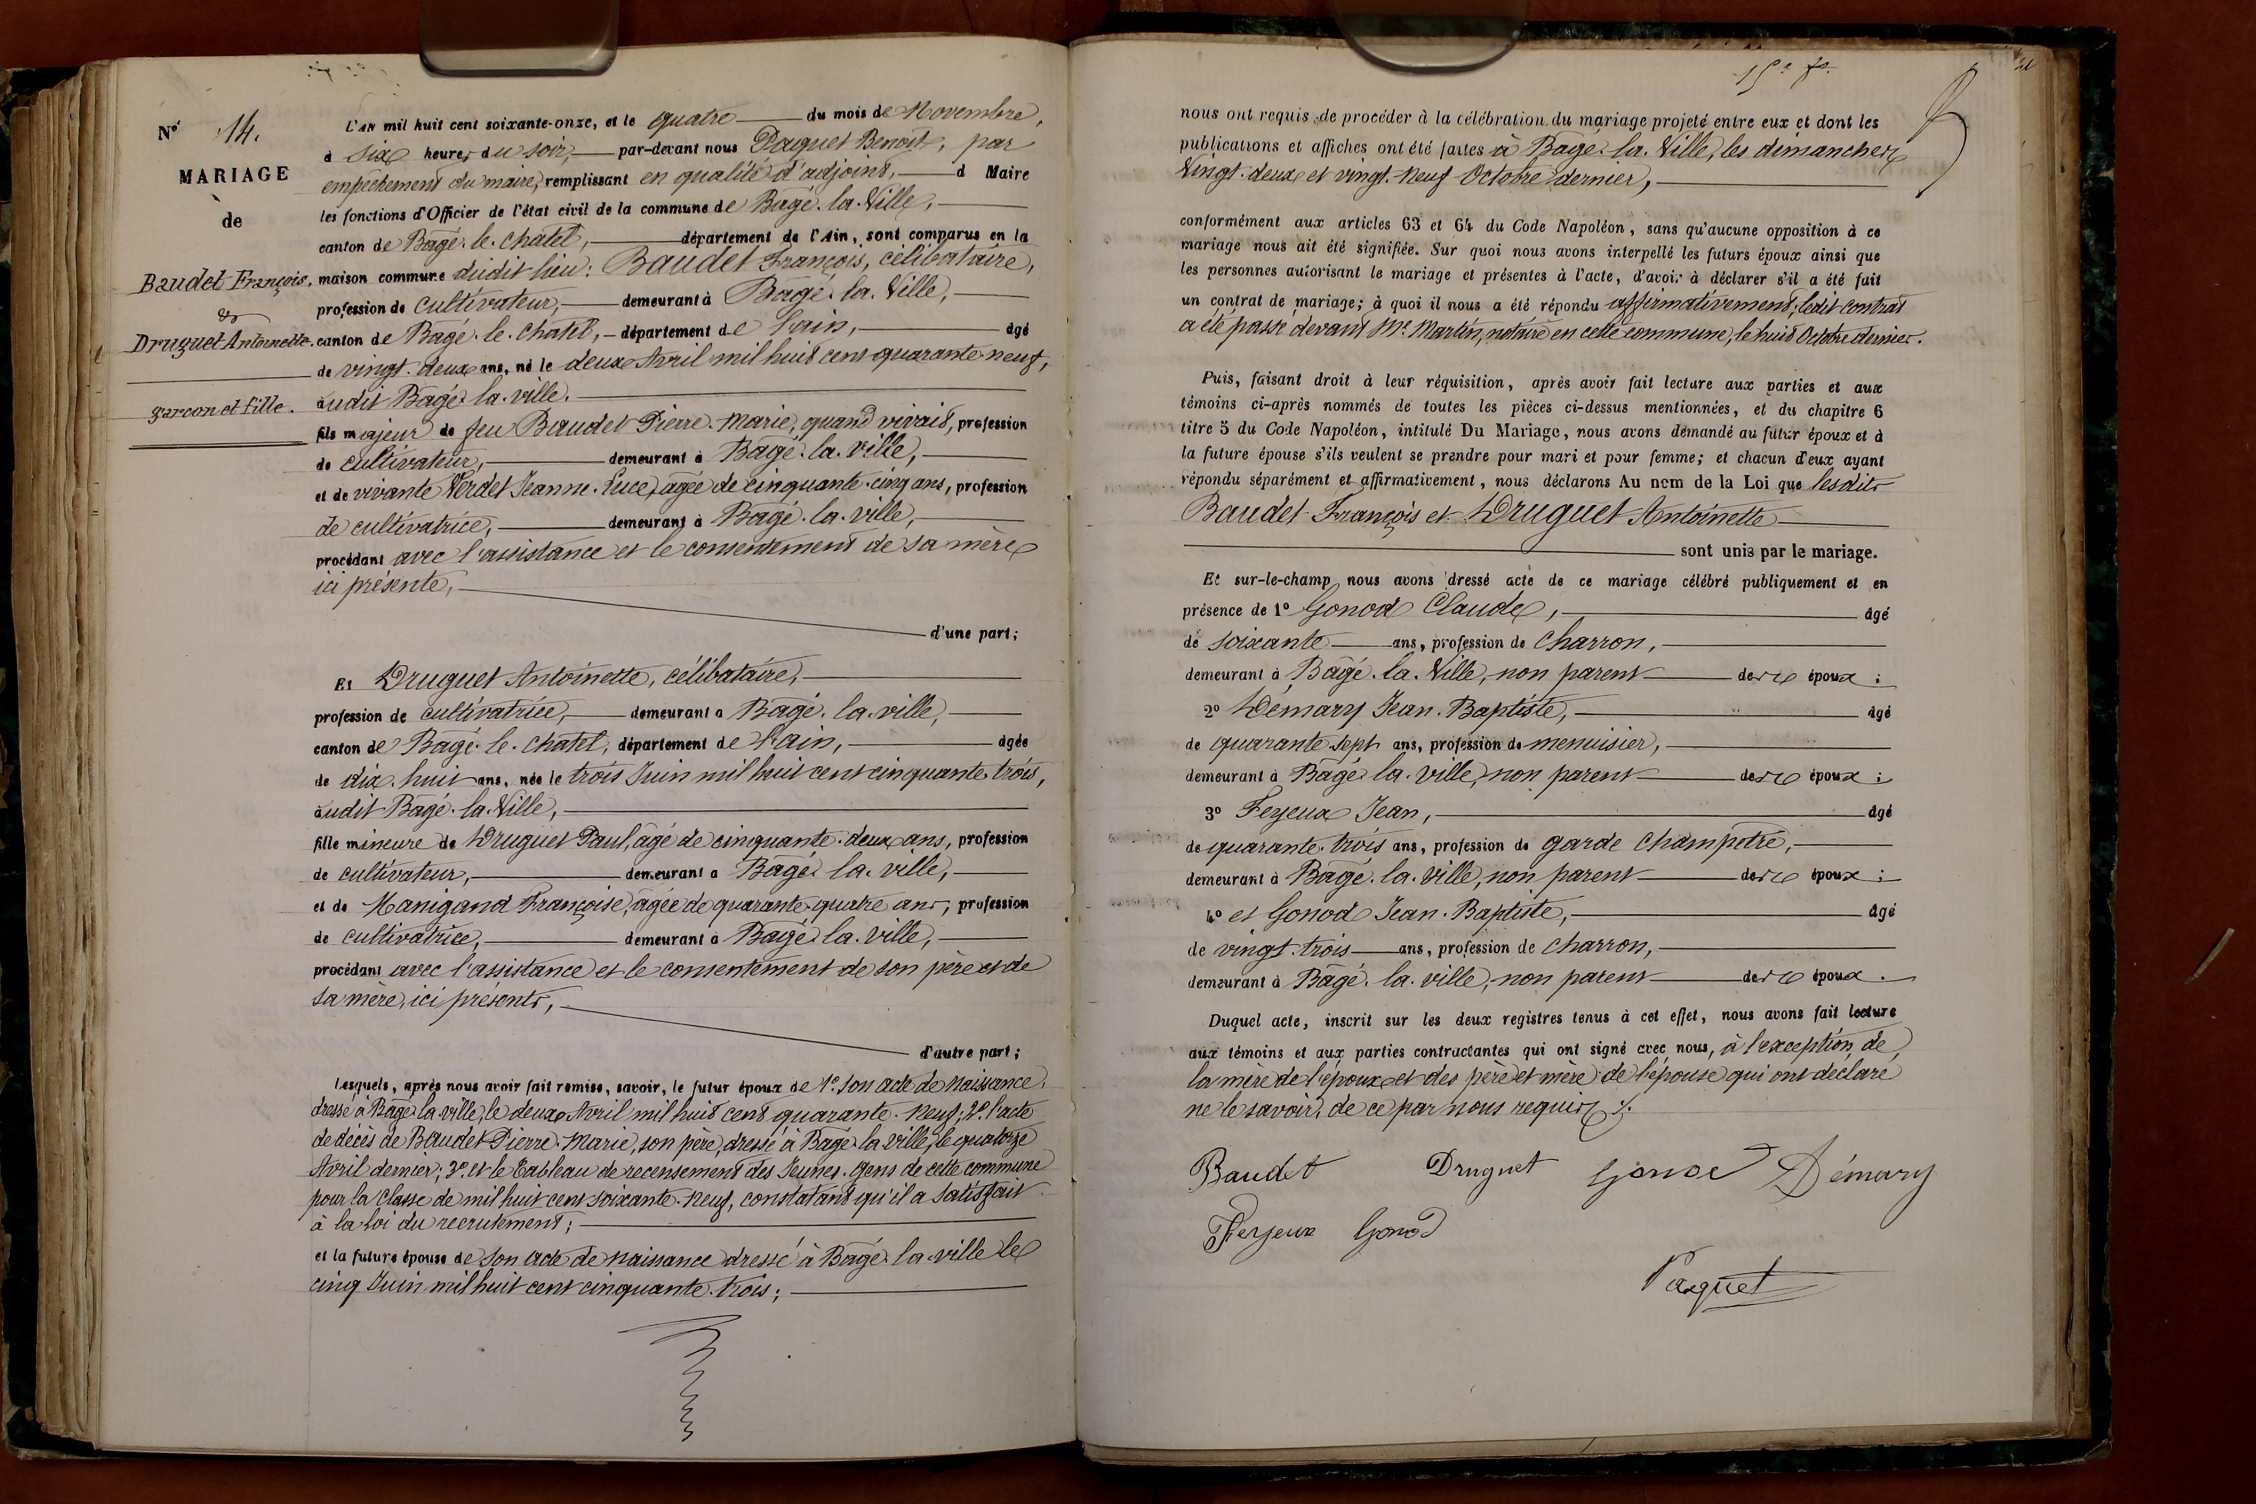 Nº 14.
MARIAGE
de
Baudet François,
&
Druguet Antoinette.
garçon et fille.
L'AN mil huit cent soixante-onze, et le quatre du mois de Novembre,
à six heures du soir, par-devant nous Paquet Benoit, par
empêchement du maire, remplissant en qualité d'adjoint, d Maire
les fonctions d'Officier de l'état civil de la commune de Bâgé-la-Ville,
canton de Bâgé-le-Châtel, département de l'Ain, sont comparus en la
maison commune dudit lieu: Baudet François, célibataire,
profession de cultivateur, demeurant à Bâgé-la-Ville,
canton de Bâgé-le-Châtel, département de l'ain, âgé
de vingt-deux ans, né le deux Avril mil huit cent quarante-neuf,
audit Bâgé-la-ville.
fils majeur de feu Baudet Pierre-Marie, quand vivait, profession
de cultivateur, demeurant à Bâgé-la-Ville,
et de vivante Verdet Jeanne-Luce, âgée de cinquante-cinq ans, profession
de cultivatrice, demeurant à Bâgé-la-ville,
procédant avec l'assistance et le consentement de sa mère
ici présente,
d'une part;
Et Druguet Antoinette, célibataire,
profession de cultivatrice, demeurant à Bâgé-la-ville,
canton de Bâgé-le-Châtel, département de l'ain, âgée
de dix-huit ans, née le trois Juin mil huit cent cinquante-trois,
audit Bâgé-la-Ville,
fille mineure de Druguet Paul, âgé de cinquante-deux ans, profession
de cultivateur, demeurant à Bâgé-la-ville,
et de Manigand Françoise, âgée de quarante-quatre ans, profession
de cultivatrice, demeurant à Bâgé-la-ville,
procédant avec l'assistance et le consentement de son père et de
sa mère, ici présents,
d'autre part;
Lesquels, après nous avoir fait remise, savoir, le futur époux de 1º son acte de naissance,
dressé à Bâgé-la-ville, le deux Avril mil huit cent quarante-neuf; 2º l'acte
de décès de Baudet Pierre-Marie, son père, dressé à Bâgé-la-ville, le quatorze
Avril dernier; 3º et le Tableau de recensement des Jeunes-gens de cette commune
pour la Classe de mil huit cent soixante-neuf, constatant qu'il a satisfait
à la loi du recrutement;
et la future épouse de son acte de naissance dressé à Bâgé-la-ville le
cinq Juin mil huit cent cinquante-trois;
nous ont requis de procéder à la célébration du mariage projeté entre eux et dont les
publications et affiches ont été faites à Bâgé-la-Ville, les dimanches
vingt-deux et vingt-neuf Octobre dernier,
conformément aux articles 63 et 64 du Code Napoléon, sans qu'aucune opposition à ce
mariage nous ait été signifiée. Sur quoi nous avons interpellé les futurs époux ainsi que
les personnes autorisant le mariage et présentes à l'acte, d'avoir à déclarer s'il a été fait
un contrat de mariage; à quoi il nous a été répondu affirmativement; ledit contrat
a été passé devant Me. Martin, notaire en cette commune, le huit Octobre dernier.
Puis, faisant droit à leur réquisition, après avoir fait lecture aux parties et aux
témoins ci-après nommés de toutes les pièces ci-dessus mentionnées, et du chapitre 6
titre 5 du Code Napoléon, intitulé Du Mariage, nous avons demandé au futur époux et à
la future épouse s'ils veulent se prendre pour mari et pour femme; et chacun d'eux ayant
répondu séparément et affirmativement, nous déclarons Au nom de la Loi que lesdits
Baudet François et Druguet Antoinette
sont unis par le mariage.
Et sur-le-champ nous avons dressé acte de ce mariage célébré publiquement et en
présence de 1º Gonod Claude, âgé
de soixante ans, profession de charron,
demeurant à Bâgé-la-Ville, non parent des époux;
2º Démary Jean-Baptiste, âgé
de quarante-sept ans, profession de menuisier,
demeurant à Bâgé-la-ville, non parent des époux;
3º Feyeux Jean, âgé
de quarante-trois ans, profession de garde champêtre,
demeurant à Bâgé-la-ville, non parent des époux;
4º et Gonod Jean-Baptiste, âgé
de vingt-trois ans, profession de charron,
demeurant à Bâgé-la-ville, non parent des époux.
Duquel acte, inscrit sur les deux registres tenus à cet effet, nous avons fait lecture
aux témoins et aux parties contractantes qui ont signé avec nous, à l'exception de
la mère de l'époux et des père et mère de l'épouse qui ont déclaré
ne le savoir, de ce par nous requis.
Baudet Druguet Gonod Démary
Feyeux Gonod
Paquet